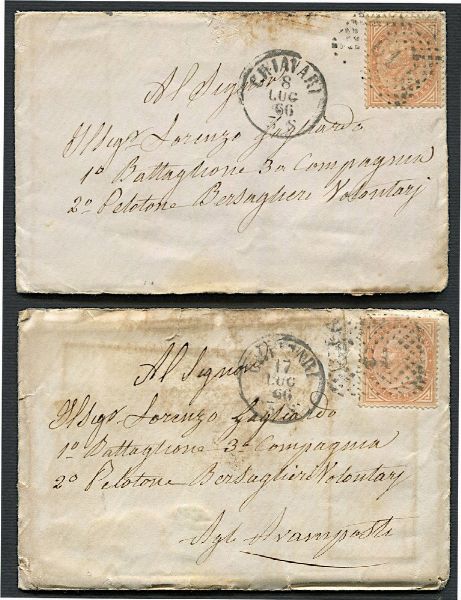 CHIAVARI
8
LUG
66
Al Signor
Illsigr Lorenzo Gagliardo
1o Battaglione 3a Compagnia
2o Pelotone Bersaglieri Volontarj
17
LUG
66
Al Signor
Illsigr Lorenzo Gagliardo
1o Battaglione 3a Compagnia
2o Pelotone Bersaglieri Volontarj
Agli Avamposti